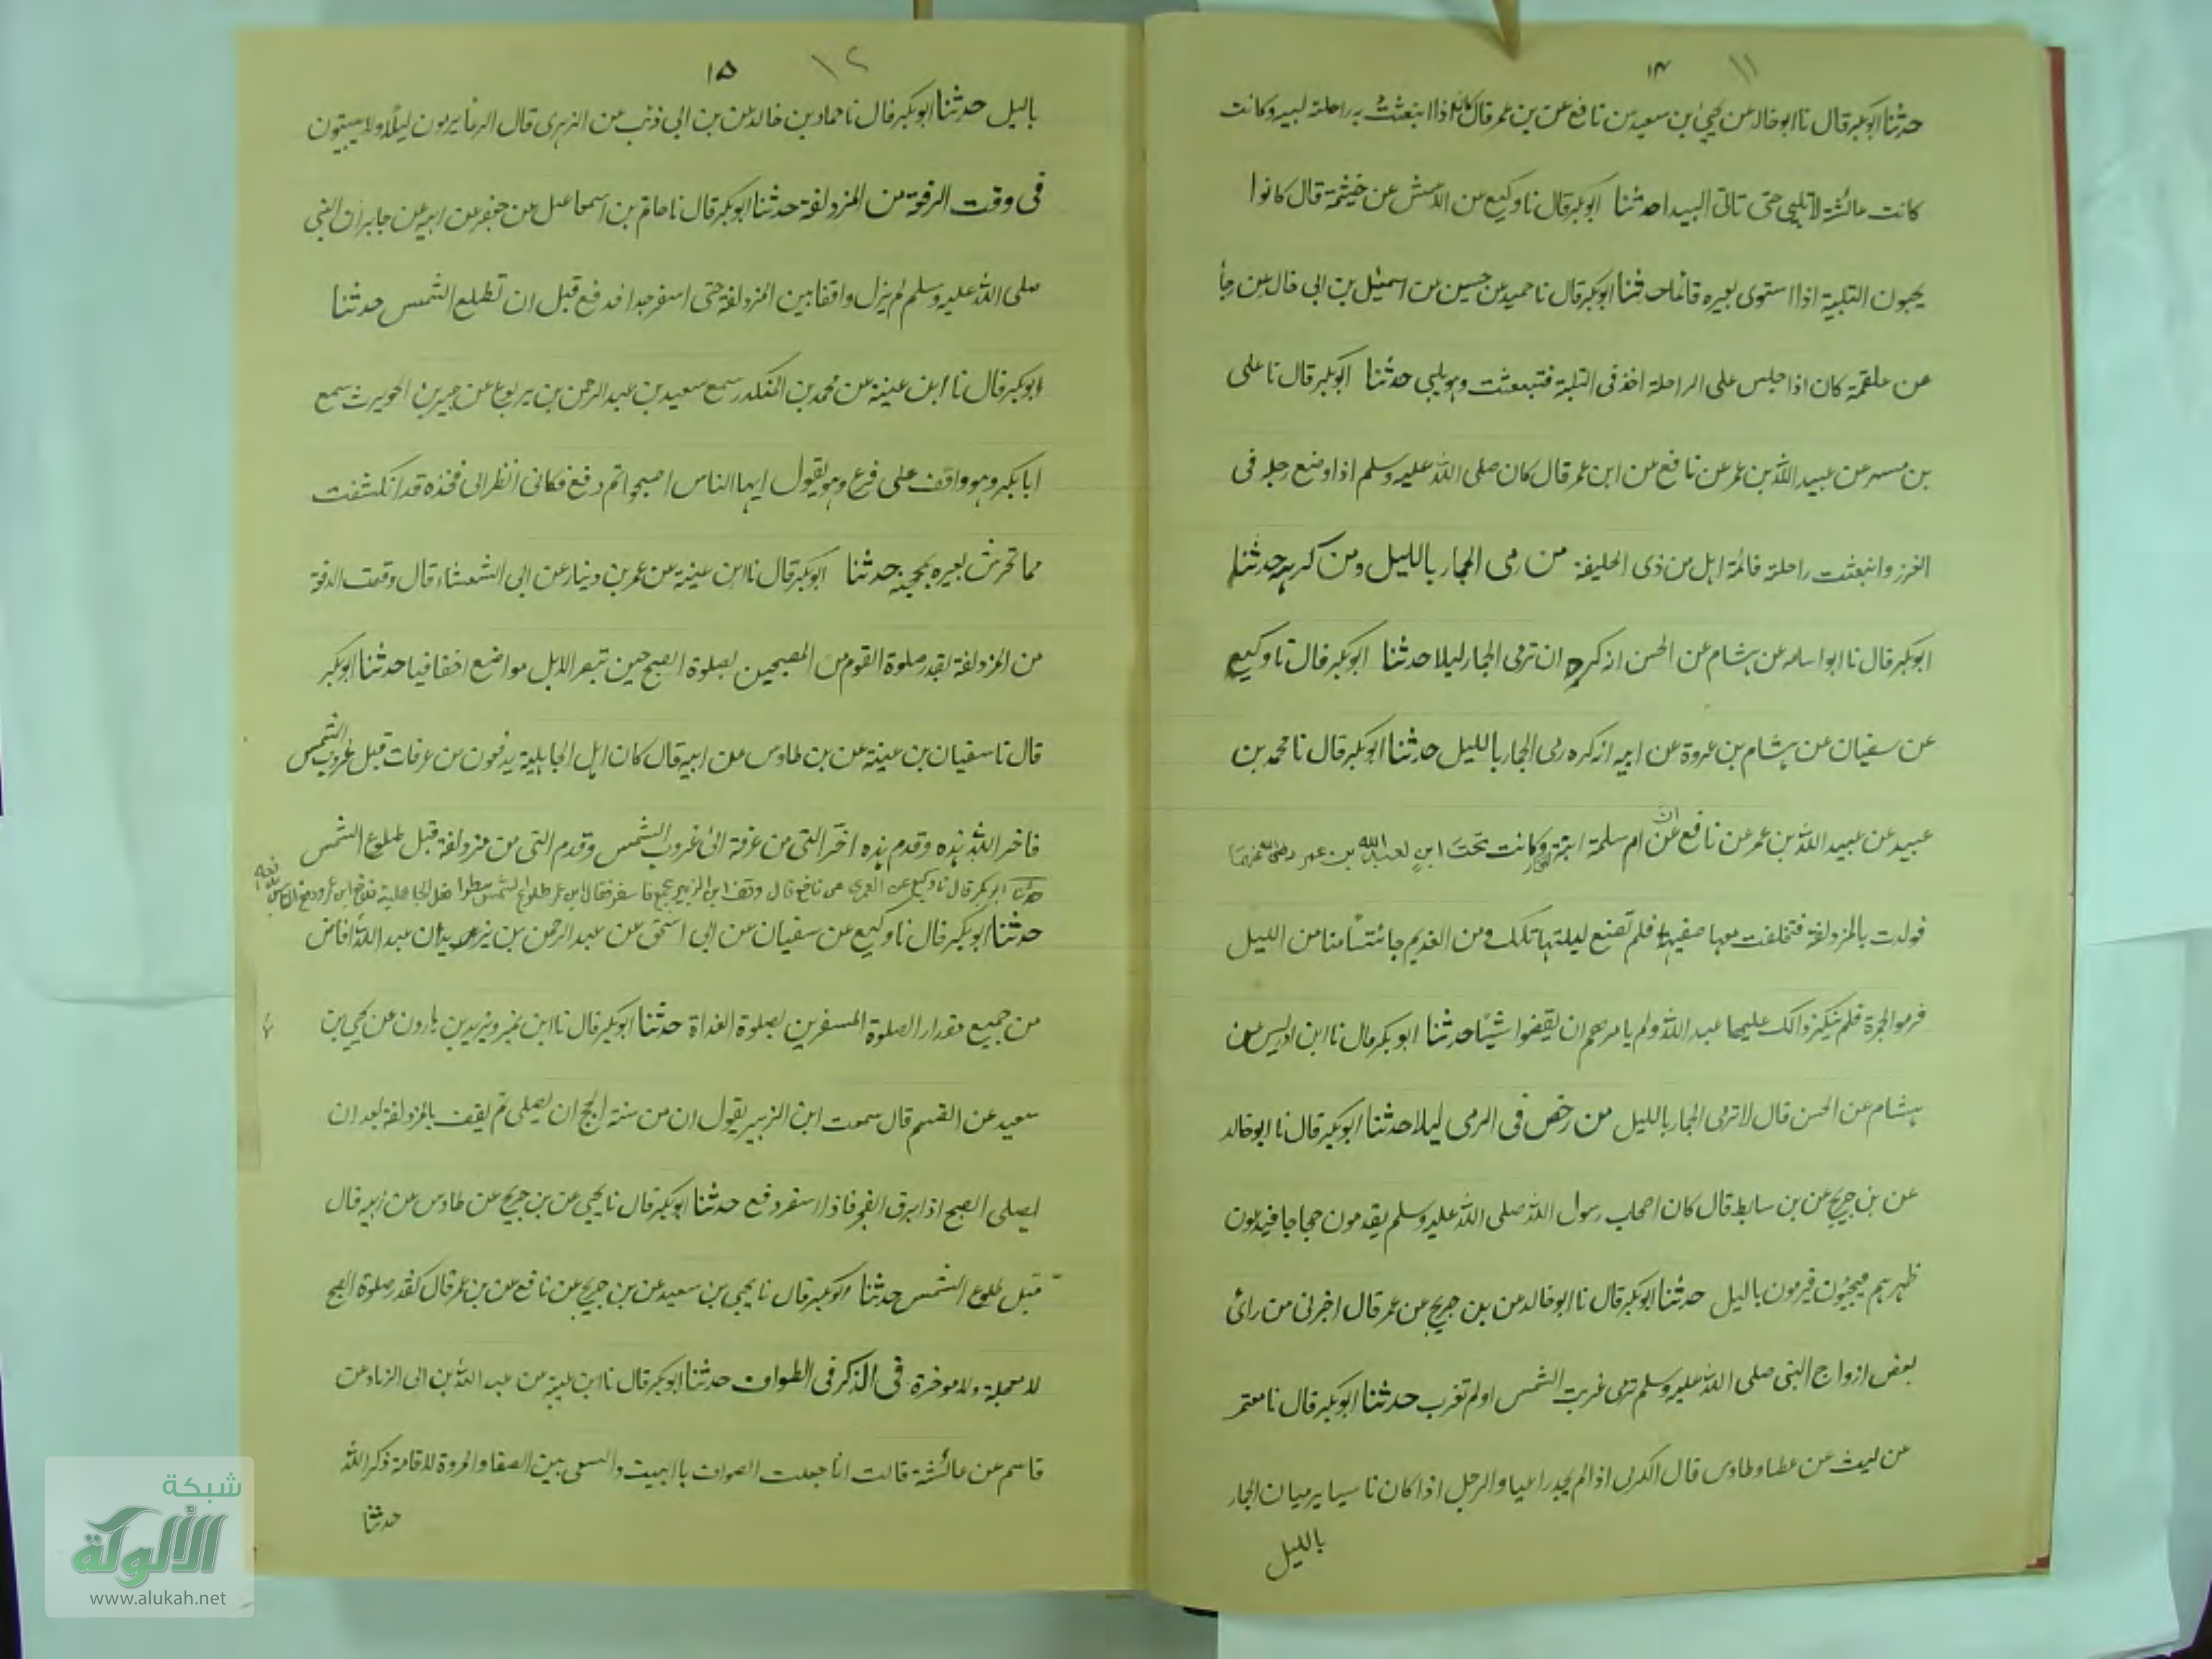 ١١ ١٤
حدثنا ابوبكر قال نا ابو خالد عن يحيى بن سعيد عن نافع عن بن عمر قال كان اذا انبعثت به راحلته لبى وكانت
كانت عائشة لا تلبي حتى تاتي البيدا حدثنا ابوبكر قال نا وكيع عن الاعمش عن خيثمة قال كانوا
يحبون التلبية اذا استوى بعيره قائما حدثنا ابوبكر قال نا حميد عن حسين عن اسمعيل بن ابي خالد عن
عن علقمة كان اذا جلس على الراحلة اخذ فى التلبة فتبعثت وهو يلبي حدثنا ابوبكر قال نا على
بن مسهر عن عبيد الله بن عمر عن نافع عن ابن عمر قال كان صلى الله عليه وسلم اذا وضع رجله فى
الغرز وانبعثت راحلته قائمة اهل من ذى الحليفة من رمى الجمار بالليل ومن كرهه حدثنا
ابوبكر قال نا ابو اسامه عن هشام عن الحسن انه كره ان ترمى الجمار ليلا حدثنا ابوبكر قال نا وكيع
عن سفيان عن هشام بن عروة عن ابيه انه كره رمى الجمار بالليل حدثنا ابوبكر قال نا محمد بن
عبيد عن عبيد الله بن عمر عن نافع عن ان ام سلمة ابنة وكانت تحت ابن لعبد الله بن عمر رضى الله عنهما
فولدت بالمزدلفة فتخلفت معها صفية فلم تضع ليلتها تلك ومن الغد ثم جائتا منا من الليل
فرموا الجمرة فلم ينكر ذالك عليهما عبد الله ولم يامرهم ان يقضوا شيئا حدثنا ابوبكر قال نا ابن ادريس عن
هشام عن الحسن قال لا ترمى الجمار بالليل من رخص فى الرمى ليلا حدثنا ابوبكر قال نا ابو خالد
عن بن جريج عن بن سابط قال كان اصحاب رسول الله صلى الله عليه وسلم يقدمون حجاجا فيدعون
ظهرهم فيجيئون فيرمون باليل حدثنا ابوبكر قال نا ابو خالد عن بن جريج عن عمر قال اخبرنى من راى
بعض ازواج النبى صلى الله عليه وسلم ترمى غربت الشمس او لم تغرب حدثنا ابوبكر قال نا معتمر
عن ليث عن عطا وطاوس قال الكرى اذا لم يجد راعيا والرجل اذا كان ناسيا يرميان الجمار
بالليل
١٢ ١٥
باليل حدثنا ابوبكر قال نا حماد بن خالد عن بن ابى ذئب عن الزهرى قال الرعا يرمون ليلا ولا يبيتون
فى وقت الدفعة من المزدلفة حدثنا ابوبكر قال نا حاتم بن اسماعيل عن جعفر عن ابيه عن جابر ان النبى
صلى الله عليه وسلم لم يزل واقفا بين المزدلفة حتى اسفر جدا فدفع قبل ان تطلع الشمس حدثنا
ابوبكر قال نا ابن عيينة عن محمد بن المنكدر سمع سعيد بن عبد الرحمن بن يربوع عن جبير بن الحويرث سمع
ابابكر وهو واقف على قزع وهو يقول ايها الناس اصبحوا ثم دفع فكانى انظر الى فخذه قد انكشفت
مما تحرش بعيره بمحجنه حدثنا ابوبكر قال نا ابن عيينة عن عمر بن دينار عن ابى الشعثاء قال وقعت الدفعة
من المزدلفة بقدر صلوة القوم من المصبحين بصلوة الصبح حين تبصر الابل مواضع اخفافها حدثنا ابوبكر
قال نا سفيان بن عيينة عن بن طاوس عن ابيه قال كان اهل الجاهلية يدفعون من عرفات قبل غروب الشمس
فاخر الله هذه وقدم هذه اخر التى من عرفة الى غروب الشمس وقدم التى من مزدلفة قبل طلوع الشمس
حدثنا ابوبكر قال نا وكيع عن العمرى عن نافع قال وقف ابن الزبير بجمع فاسفر فقال ابن عمر طلوع الشمس ينظروا فعل الجاهلية فدفع ابن عمر ودفع الناس
حدثنا ابوبكر قال نا وكيع عن سفيان عن ابى اسحق عن عبد الرحمن بن يزيد ان عبد الله افاض
من جميع مقدار الصلوة المسفرين بصلوة الغداة حدثنا ابوبكر قال نا ابن نمير ويزيد بن هارون عن يحيى بن
سعيد عن القسم قال سمعت ابن الزبير يقول ان من سنة الحج ان يصلى ثم يقف بالمزدلفة بعد ان
يصلى الصبح اذا برق الفجر فاذا اسفر دفع حدثنا ابوبكر قال نا يحيى عن بن جريج عن طاوس عن ابيه قال
قبل طلوع الشمس حدثنا ابوبكر قال نا يحيى بن سعيد عن بن جريج عن نافع عن بن عمر قال كقدر صلوة الصبح
لا معجلة ولا موخرة فى الذكر فى الطواف حدثنا ابوبكر قال نا ابن عيينة عن عبد الله بن ابى الزناد عن
قاسم عن عائشة قالت انا جعلت الصواف باالبيت والسعى بين الصفا والمروة لاقامة ذكر الله
حدثنا
شبكة
الألوكة
www.alukah.net